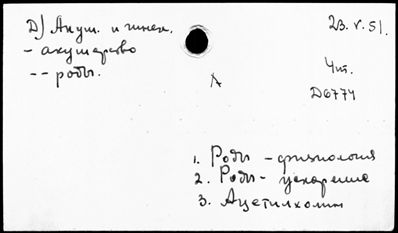 Д) Акуш. и гинек.
23.V.51.
- акушерство
-- роды.
Чт.
Д6774
1. Роды - физиология
2. Роды - ускорение
3. Ацетилхолин